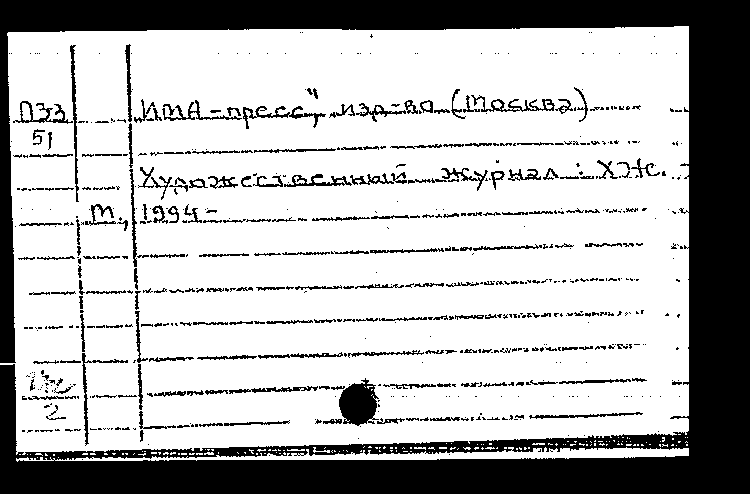 П33 ИМА-пресс", изд-во (Москва)
51
Художественный журнал : ХЖ. -
М., 1994 -
2